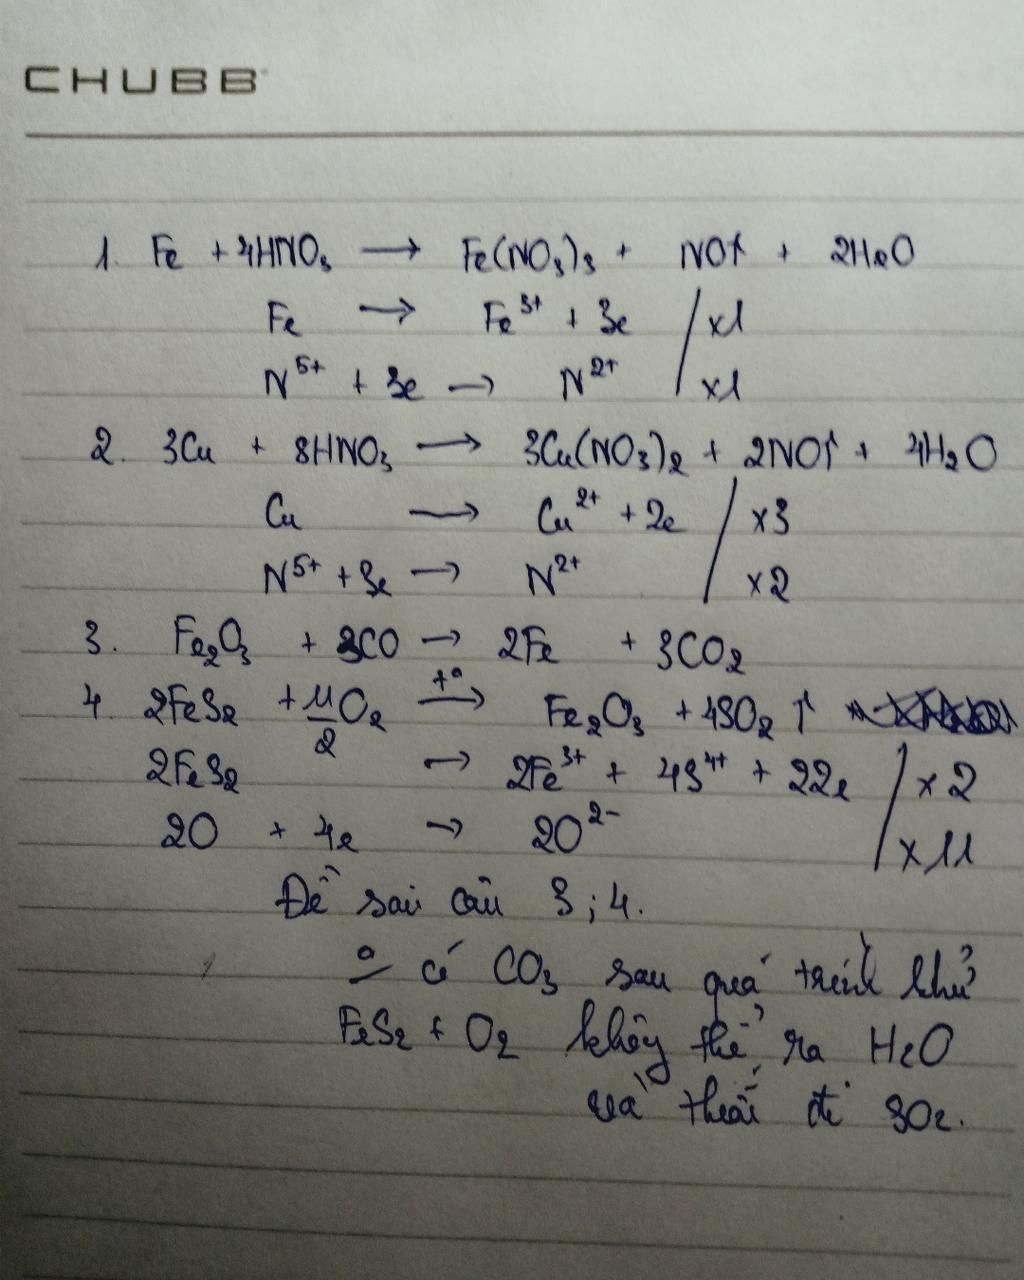 CHUBB
1. Fe + 4HNO₃ → Fe(NO₃)₃ + NO↑ + 2H₂O
Fe → Fe³⁺ + 3e / x1
N⁵⁺ + 3e → N²⁺ / x1
2. 3Cu + 8HNO₃ → 3Cu(NO₃)₂ + 2NO↑ + 4H₂O
Cu → Cu²⁺ + 2e / x3
N⁵⁺ + 3e → N²⁺ / x2
3. Fe₂O₃ + 3CO → 2Fe + 3CO₂
4. 2FeS₂ + 11/2 O₂ →(t°) Fe₂O₃ + 4SO₂ ↑
2FeS₂ → 2Fe³⁺ + 4S⁴⁺ + 22e / x2
2O + 4e → 2O²⁻ / x11
Đề sai câu 3; 4.
có CO₃ sau quá trình khử
FeS₂ + O₂ không thể ra H₂O
và thiếu đi SO₂.